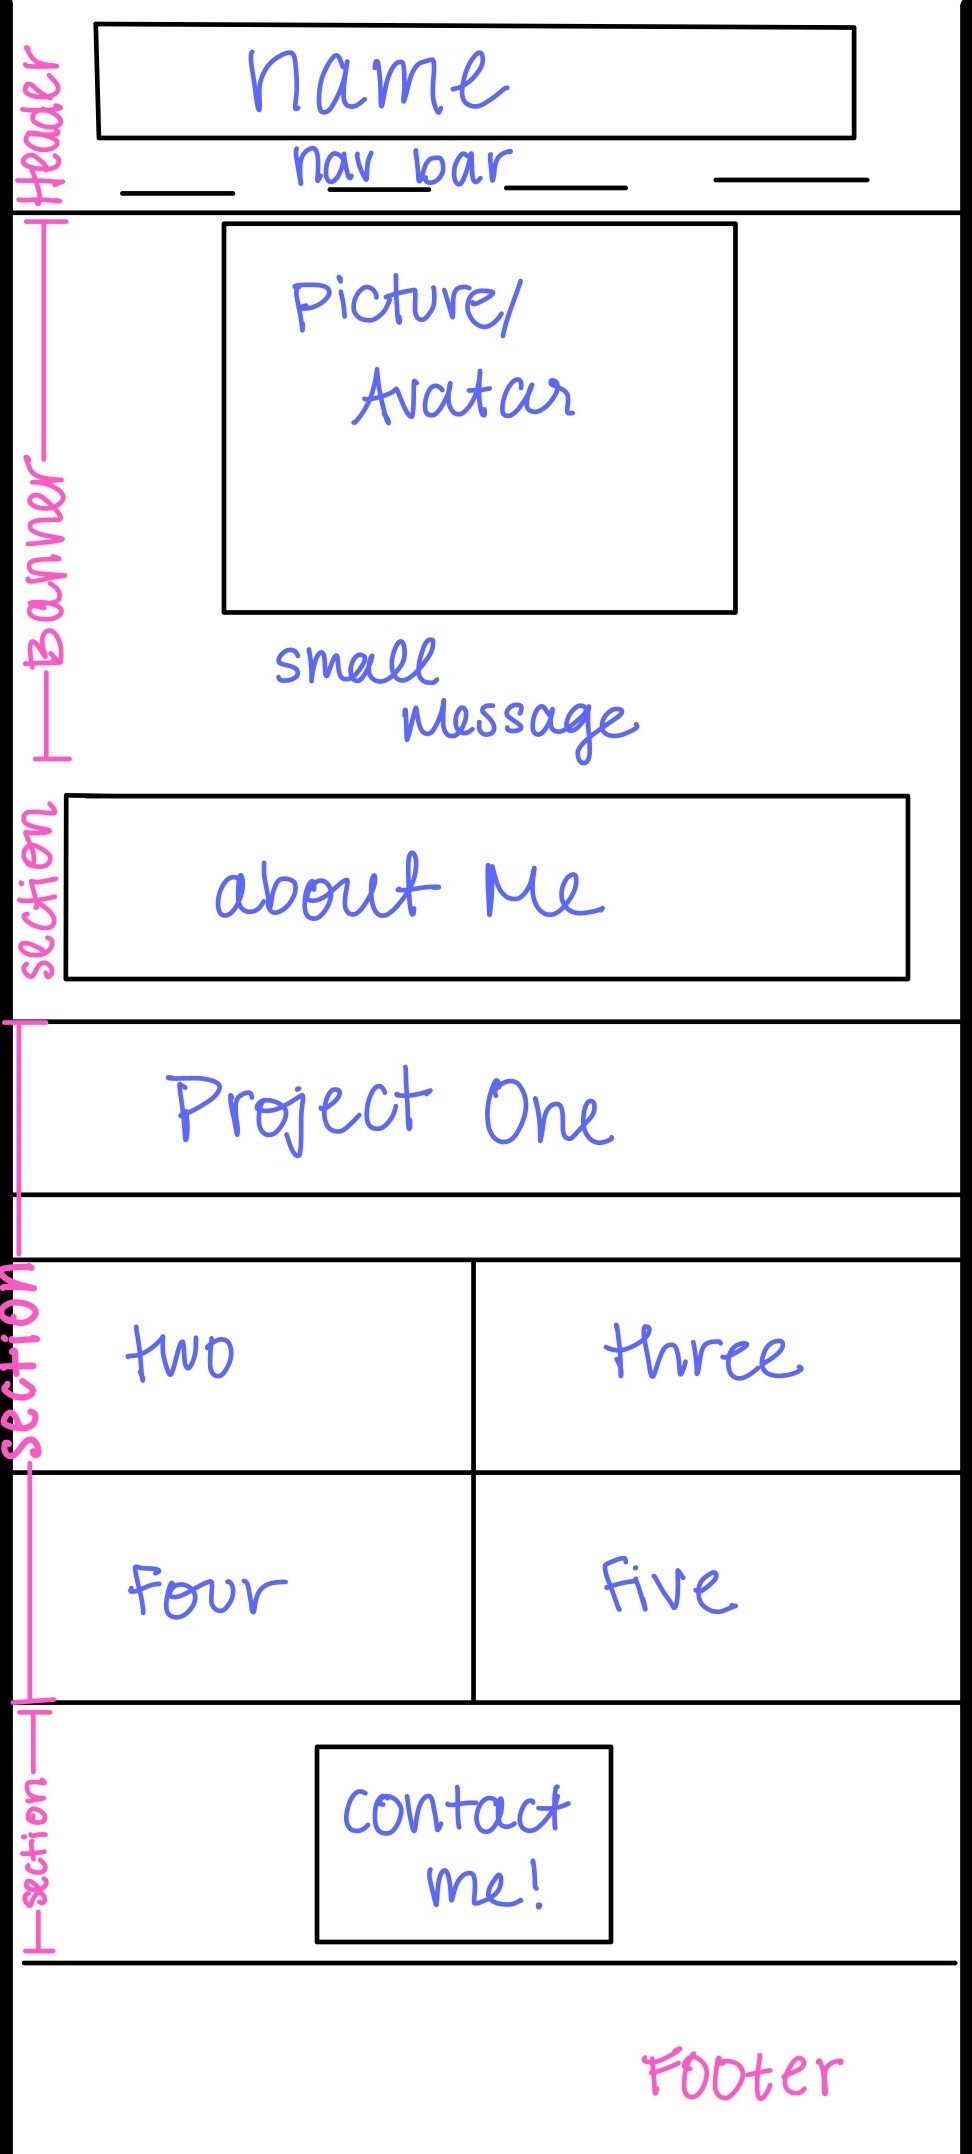 Header
name
nav bar
Banner
Picture/
Avatar
small
Message
section
about Me
section
Project One
two
three
Four
Five
section
contact
me!
Footer